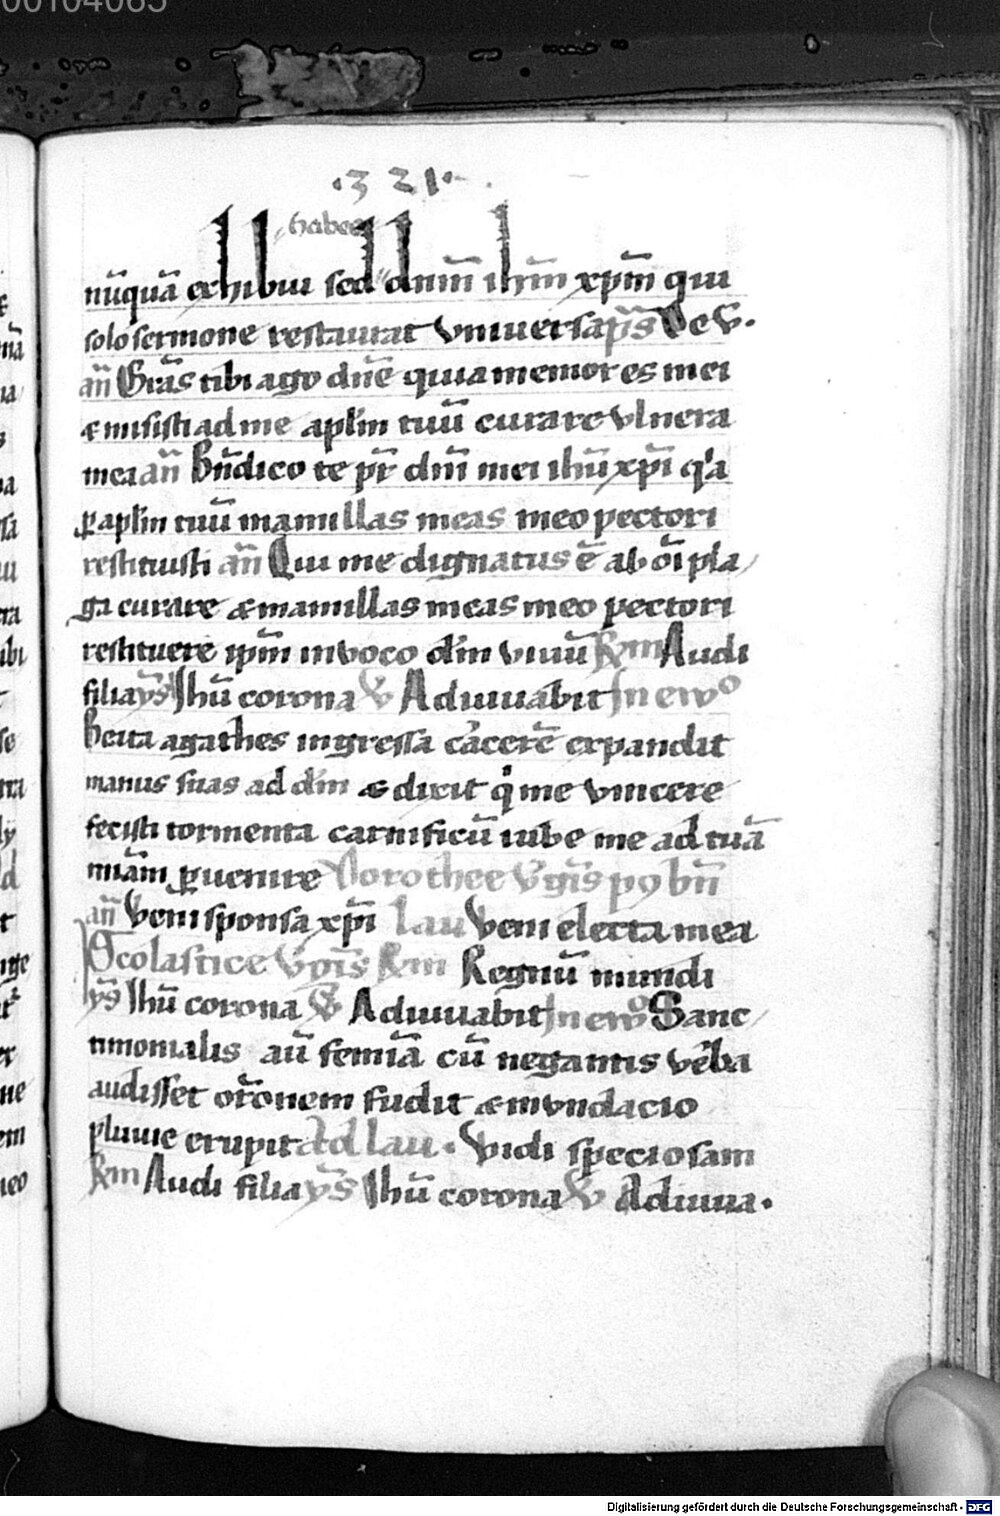 00104065
·321·
habeo
nūquā exhibui sed dnm̄ ihm̄ xpm̄ qui
solo sermone restaurat vniuersa p̄s De V.
an̄ Grās tibi ago dn̄e quia memor es mei
& misisti ad me aplm̄ tuū curare vlnera
mea an̄ Bn̄dico te pr̄ dn̄i mei ihū xpī q'a
ꝑ aplm̄ tuū mamillas meas meo pectori
restituisti an̄ Qui me dignatus ē ab oī pla
ga curare & mamillas meas meo pectori
restituere ipm̄ inuoco dm̄ viuū Audi
filia ys Ihū corona Adiuuabit In ewo
Beata agathes ingressa cācerē expandit
manus suas ad dm̄ & dixit qͥ me vincere
fecisti tormenta carnificū iube me ad tuā
miām ꝑuenire Dorothee Vgīs
an̄ Veni sponsa xpī Lau Veni electa mea
Scolastice Vgīs Regnū mundi
ys Ihū corona Adiuuabit In ewo Sanc
timonialis aū femīa cū negantis vēba
audisset orōnem fudit & mundacio
pluuie erupit Ad lau. Vidi speciosam
Audi filia ys Ihū corona Adiuua.
Digitalisierung gefördert durch die Deutsche Forschungsgemeinschaft - DFG